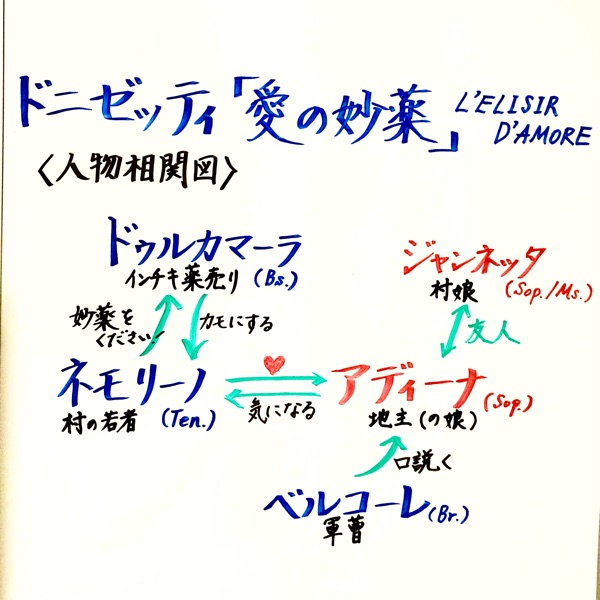 ドニゼッティ「愛の妙薬」
L'ELISIR
D'AMORE
〈人物相関図〉
ドゥルカマーラ
インチキ薬売り (Bs.)
ジャンネッタ
村娘 (Sop./Ms.)
妙薬を
ください!
カモにする
友人
ネモリーノ
村の若者 (Ten.)
気になる
アディーナ
(Sop.)
地主(の娘)
口説く
ベルコーレ(Br.)
軍曹